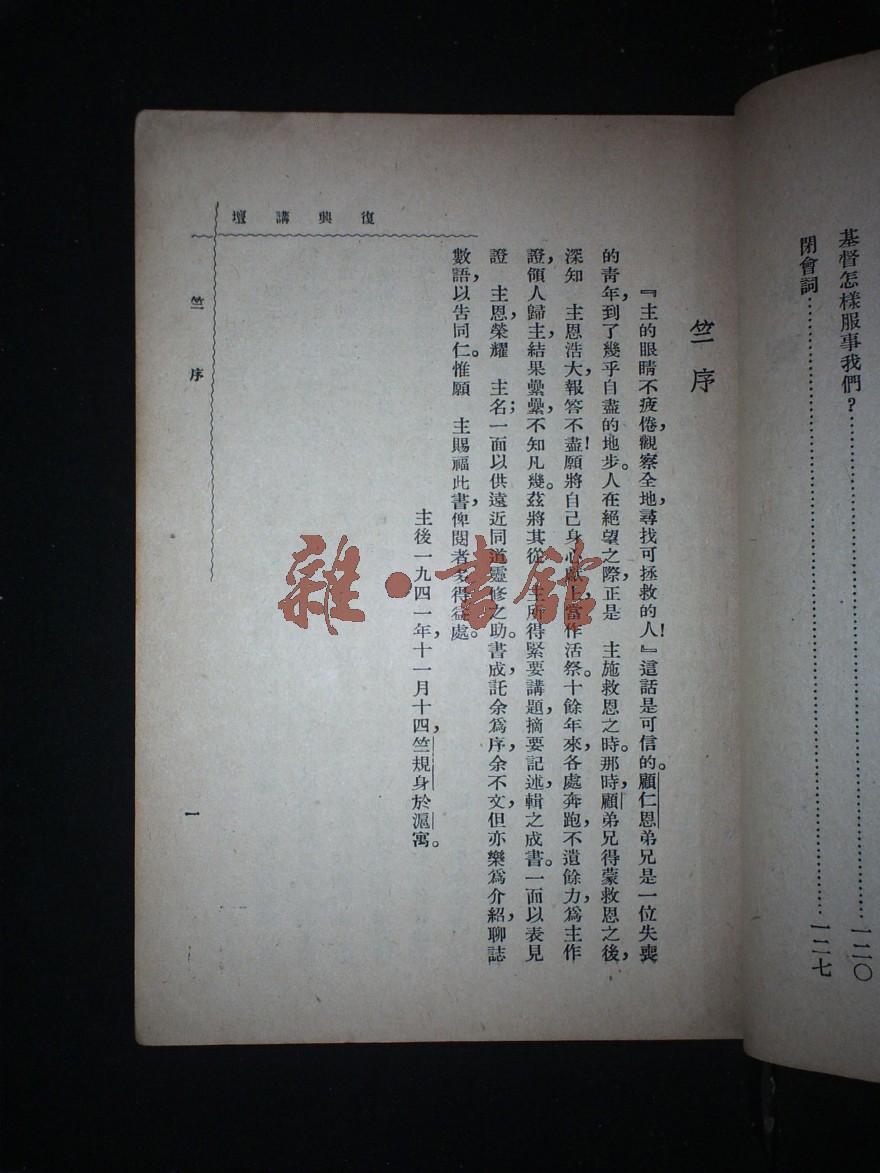 基督怎樣服事我們？……一二〇
閉會詞……一二七
竺序
『主的眼睛不疲倦，觀察全地，尋找可拯救的人！』這話是可信的。顧仁恩弟兄是一位失喪
的青年，到了幾乎自盡的地步。人在絕望之際，正是　主施救恩之時。那時，顧弟兄得蒙救恩之後，
深知　主恩浩大，報答不盡！願將自己身心獻上，當作活祭。十餘年來，各處奔跑，不遺餘力，爲主作
證，領人歸主，結果纍纍，不知凡幾。茲將其從　主所得緊要講題，摘要記述，輯之成書。一面以表見
證　主恩，榮耀　主名；一面以供遠近同道靈修之助。書成，託余爲序，余不文，但亦樂爲介紹，聊誌
數語，以告同仁。惟願　主賜福此書，俾閱者多得益處。
主後一九四一年，十一月十四，竺規身於滬寓。
復興講壇
竺序
一
雜·書館